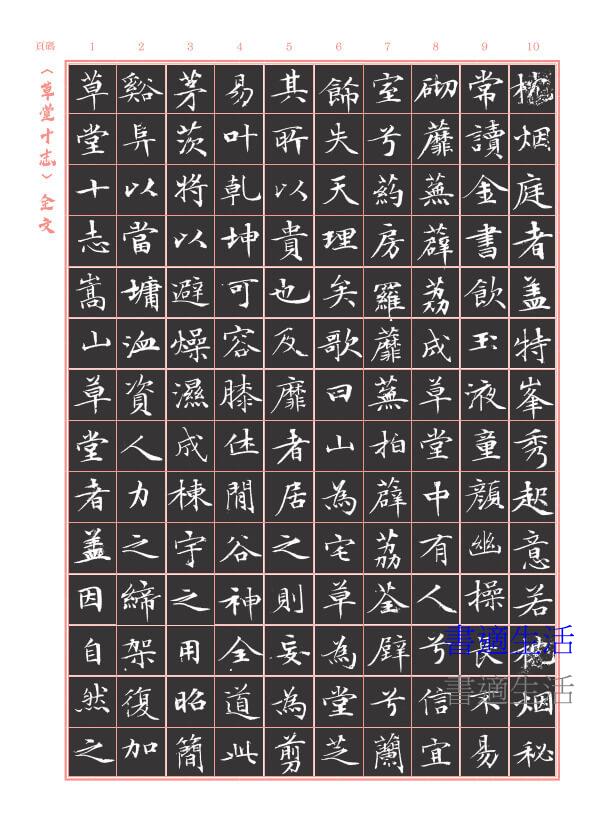 頁碼 1 2 3 4 5 6 7 8 9 10
〈草堂十志〉全文
草堂十志嵩山草堂者盖因自然之
谿阜以當墉洫資人力之締架復加
茅茨將以避燥濕成棟宇之用昭簡
易叶乾坤可容膝休閒谷神全道此
其所以貴也及靡者居之則妄為剪
飾失天理矣歌曰山為宅草為堂芝
室兮葯房羅蘼蕪拍薜荔荃壁兮蘭
砌蘼蕪薜荔成草堂中有人兮信宜
常讀金書飲玉液童顏幽操長不易
枕烟庭者盖特峯秀起意若枕烟秘
書適生活
書適生活